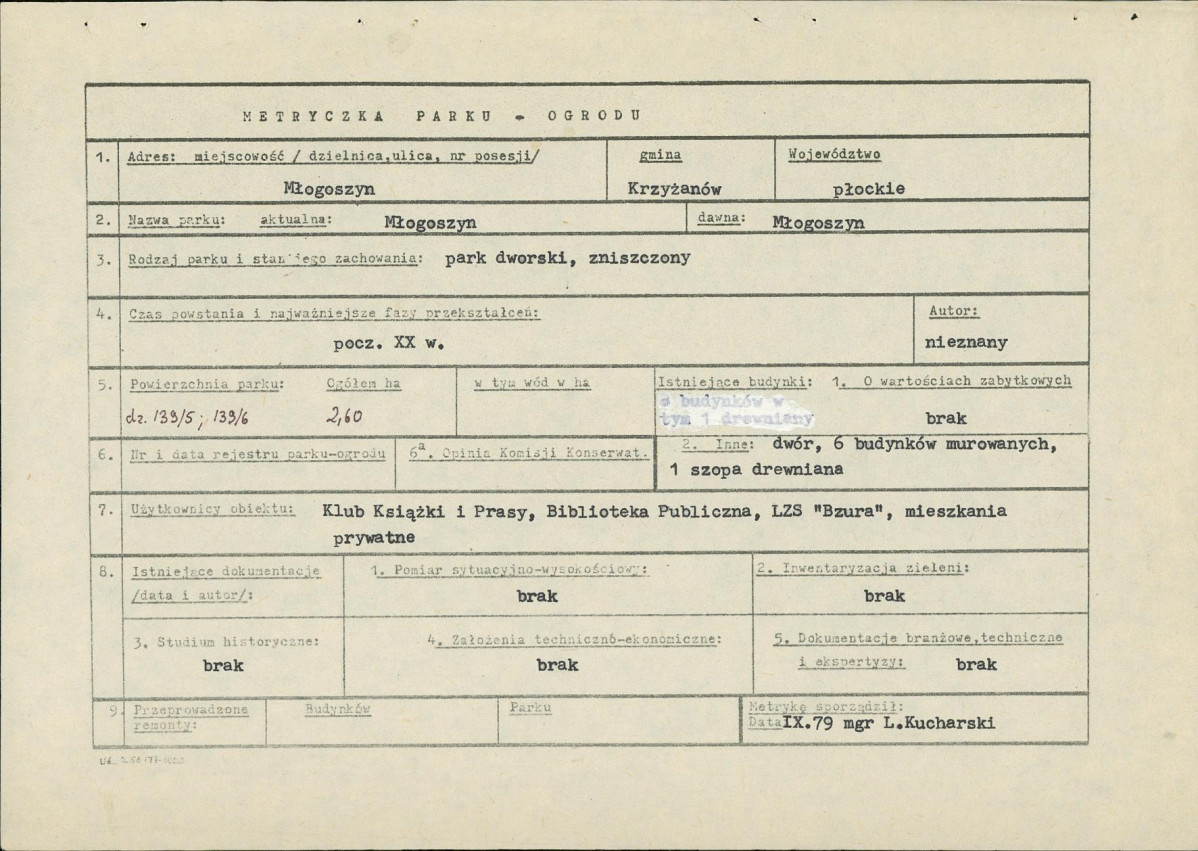 METRYCZKA PARKU - OGRODU
1. Adres: miejscowość / dzielnica,ulica, nr posesji/ gmina Województwo
Młogoszyn Krzyżanów płockie
2. Nazwa parku: aktualna: Młogoszyn dawna: Młogoszyn
3. Rodzaj parku i stan jego zachowania: park dworski, zniszczony
4. Czas powstania i najważniejsze fazy przekształceń: Autor:
pocz. XX w. nieznany
5. Powierzchnia parku: Ogółem ha w tym wód w ha Istniejące budynki: 1. O wartościach zabytkowych
budynków w
dz. 139/5; 139/6 2,60 tym 1 drewniany brak
6. Nr i data rejestru parku-ogrodu 6a. Opinia Komisji Konserwat. 2. Inne: dwór, 6 budynków murowanych,
1 szopa drewniana
7. Użytkownicy obiektu: Klub Książki i Prasy, Biblioteka Publiczna, LZS "Bzura", mieszkania
prywatne
8. Istniejące dokumentacje 1. Pomiar sytuacyjno-wysokościowy: 2. Inwentaryzacja zieleni:
/data i autor/: brak brak
3. Studium historyczne: 4. Założenia techniczno-ekonomiczne: 5. Dokumentacje branżowe,techniczne
brak brak i ekspertyzy: brak
9. Przeprowadzone Budynków Parku Metrykę sporządził:
remonty: Data IX.79 mgr L.Kucharski